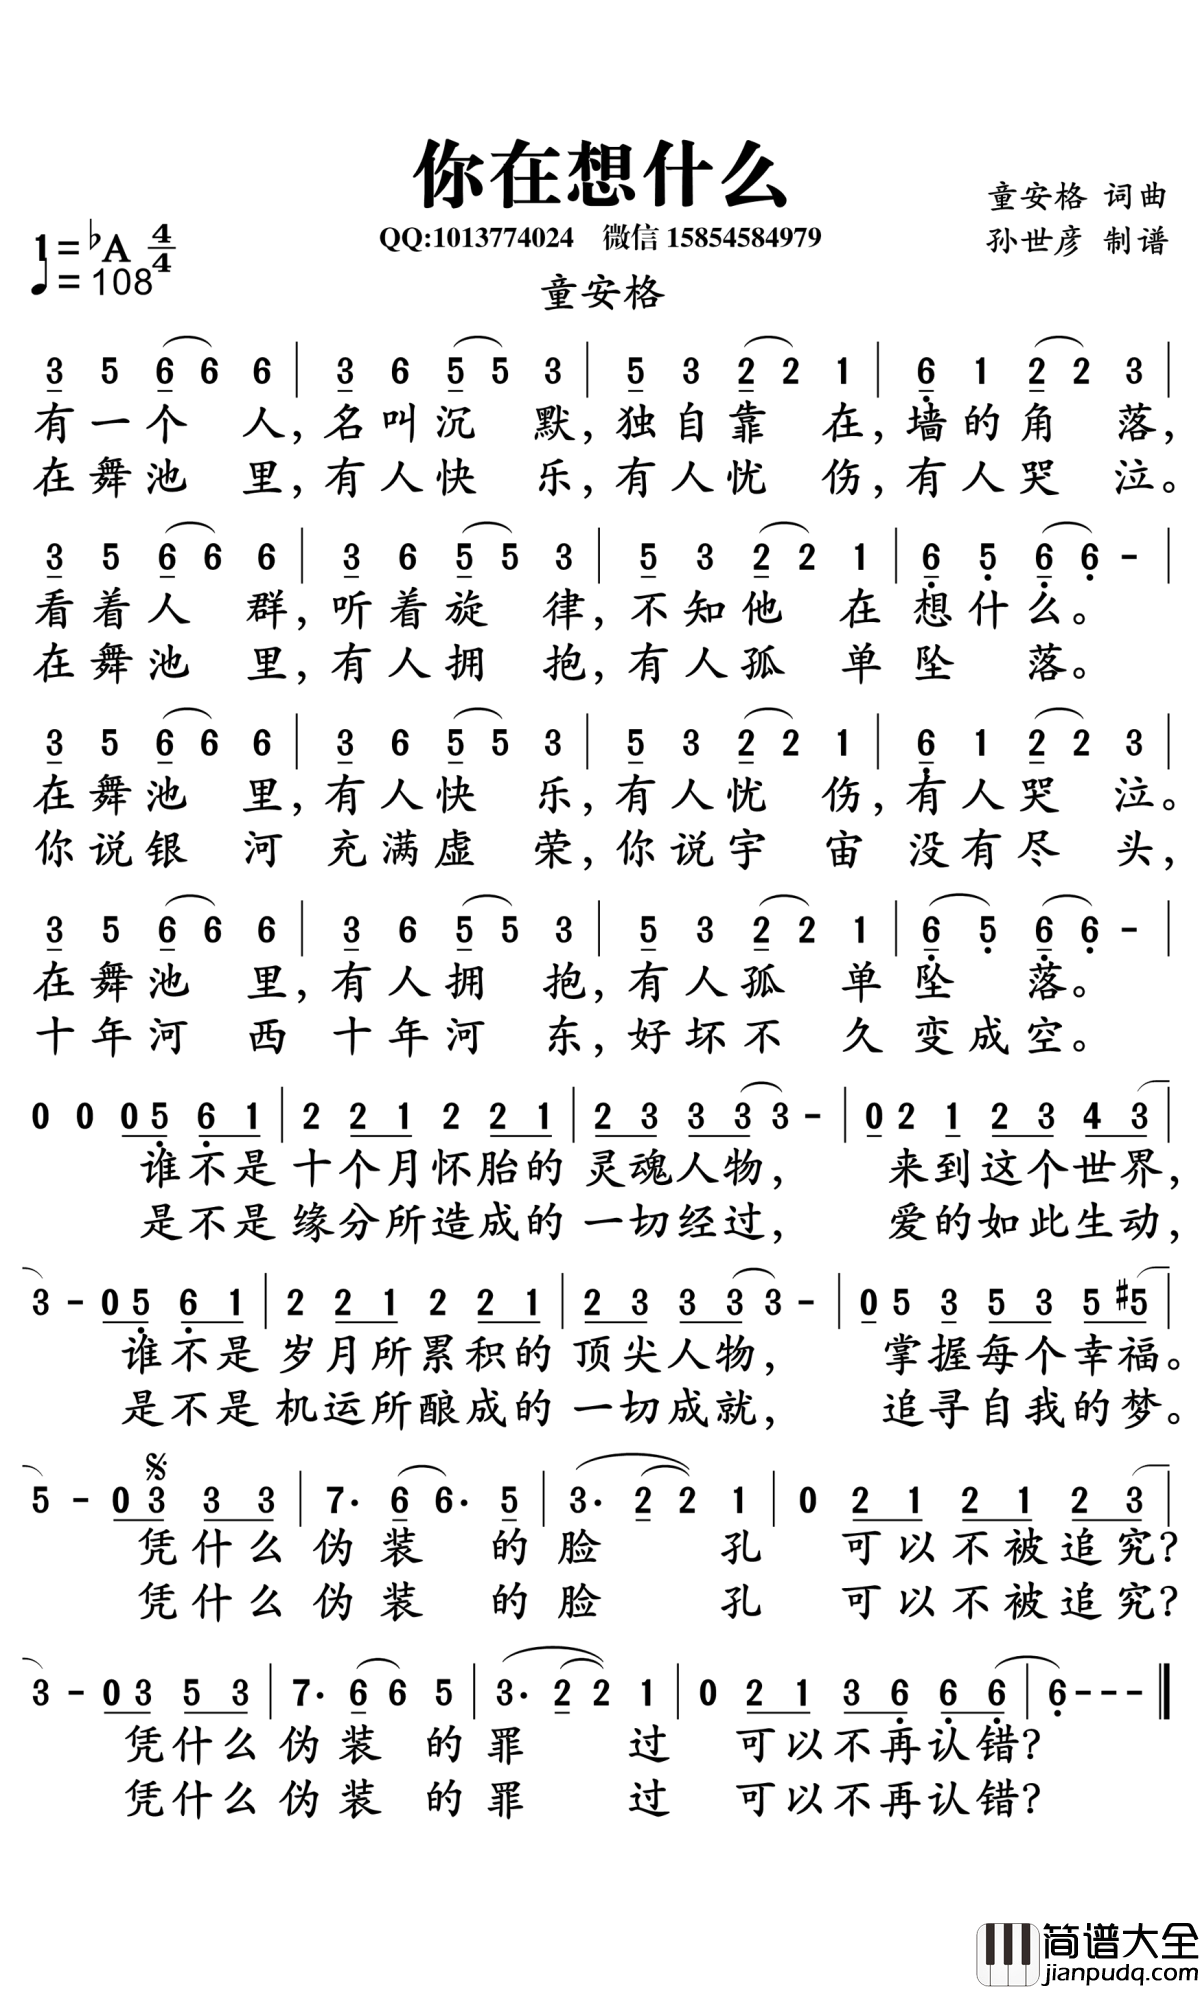 你在想什么
童安格 词曲
1=♭A 4/4
QQ:1013774024 微信 15854584979
孙世彦 制谱
♩=108
童安格
3 5 6 6 6 | 3 6 5 5 3 | 5 3 2 2 1 | 6 1 2 2 3 |
有一个 人,名叫沉 默,独自靠 在,墙的角 落,
在舞池 里,有人快 乐,有人忧 伤,有人哭 泣。
3 5 6 6 6 | 3 6 5 5 3 | 5 3 2 2 1 | 6 5 6 6 - |
看着人 群,听着旋 律,不知他 在想什么。
在舞池 里,有人拥 抱,有人孤 单坠 落。
3 5 6 6 6 | 3 6 5 5 3 | 5 3 2 2 1 | 6 1 2 2 3 |
在舞池 里,有人快 乐,有人忧 伤,有人哭 泣。
你说银 河 充满虚 荣,你说宇 宙 没有尽 头,
3 5 6 6 6 | 3 6 5 5 3 | 5 3 2 2 1 | 6 5 6 6 - |
在舞池 里,有人拥 抱,有人孤 单坠 落。
十年河 西 十年河 东,好坏不 久变成空。
0 0 0 5 6 1 | 2 2 1 2 2 1 | 2 3 3 3 3 - | 0 2 1 2 3 4 3 |
谁不是十个月怀胎的灵魂人物, 来到这个世界,
是不是缘分所造成的一切经过, 爱的如此生动,
3 - 0 5 6 1 | 2 2 1 2 2 1 | 2 3 3 3 3 - | 0 5 3 5 3 5 #5 |
谁不是岁月所累积的顶尖人物, 掌握每个幸福。
是不是机运所酿成的一切成就, 追寻自我的梦。
5 - 0 3 3 3 | 7· 6 6· 5 | 3· 2 2 1 | 0 2 1 2 1 2 3 |
凭什么伪装 的脸 孔 可以不被追究?
凭什么伪装 的脸 孔 可以不被追究?
3 - 0 3 5 3 | 7· 6 6 5 | 3· 2 2 1 | 0 2 1 3 6 6 6 | 6 - - - ‖
凭什么伪装 的罪 过 可以不再认错?
凭什么伪装 的罪 过 可以不再认错?
简谱大全
jianpudq.com